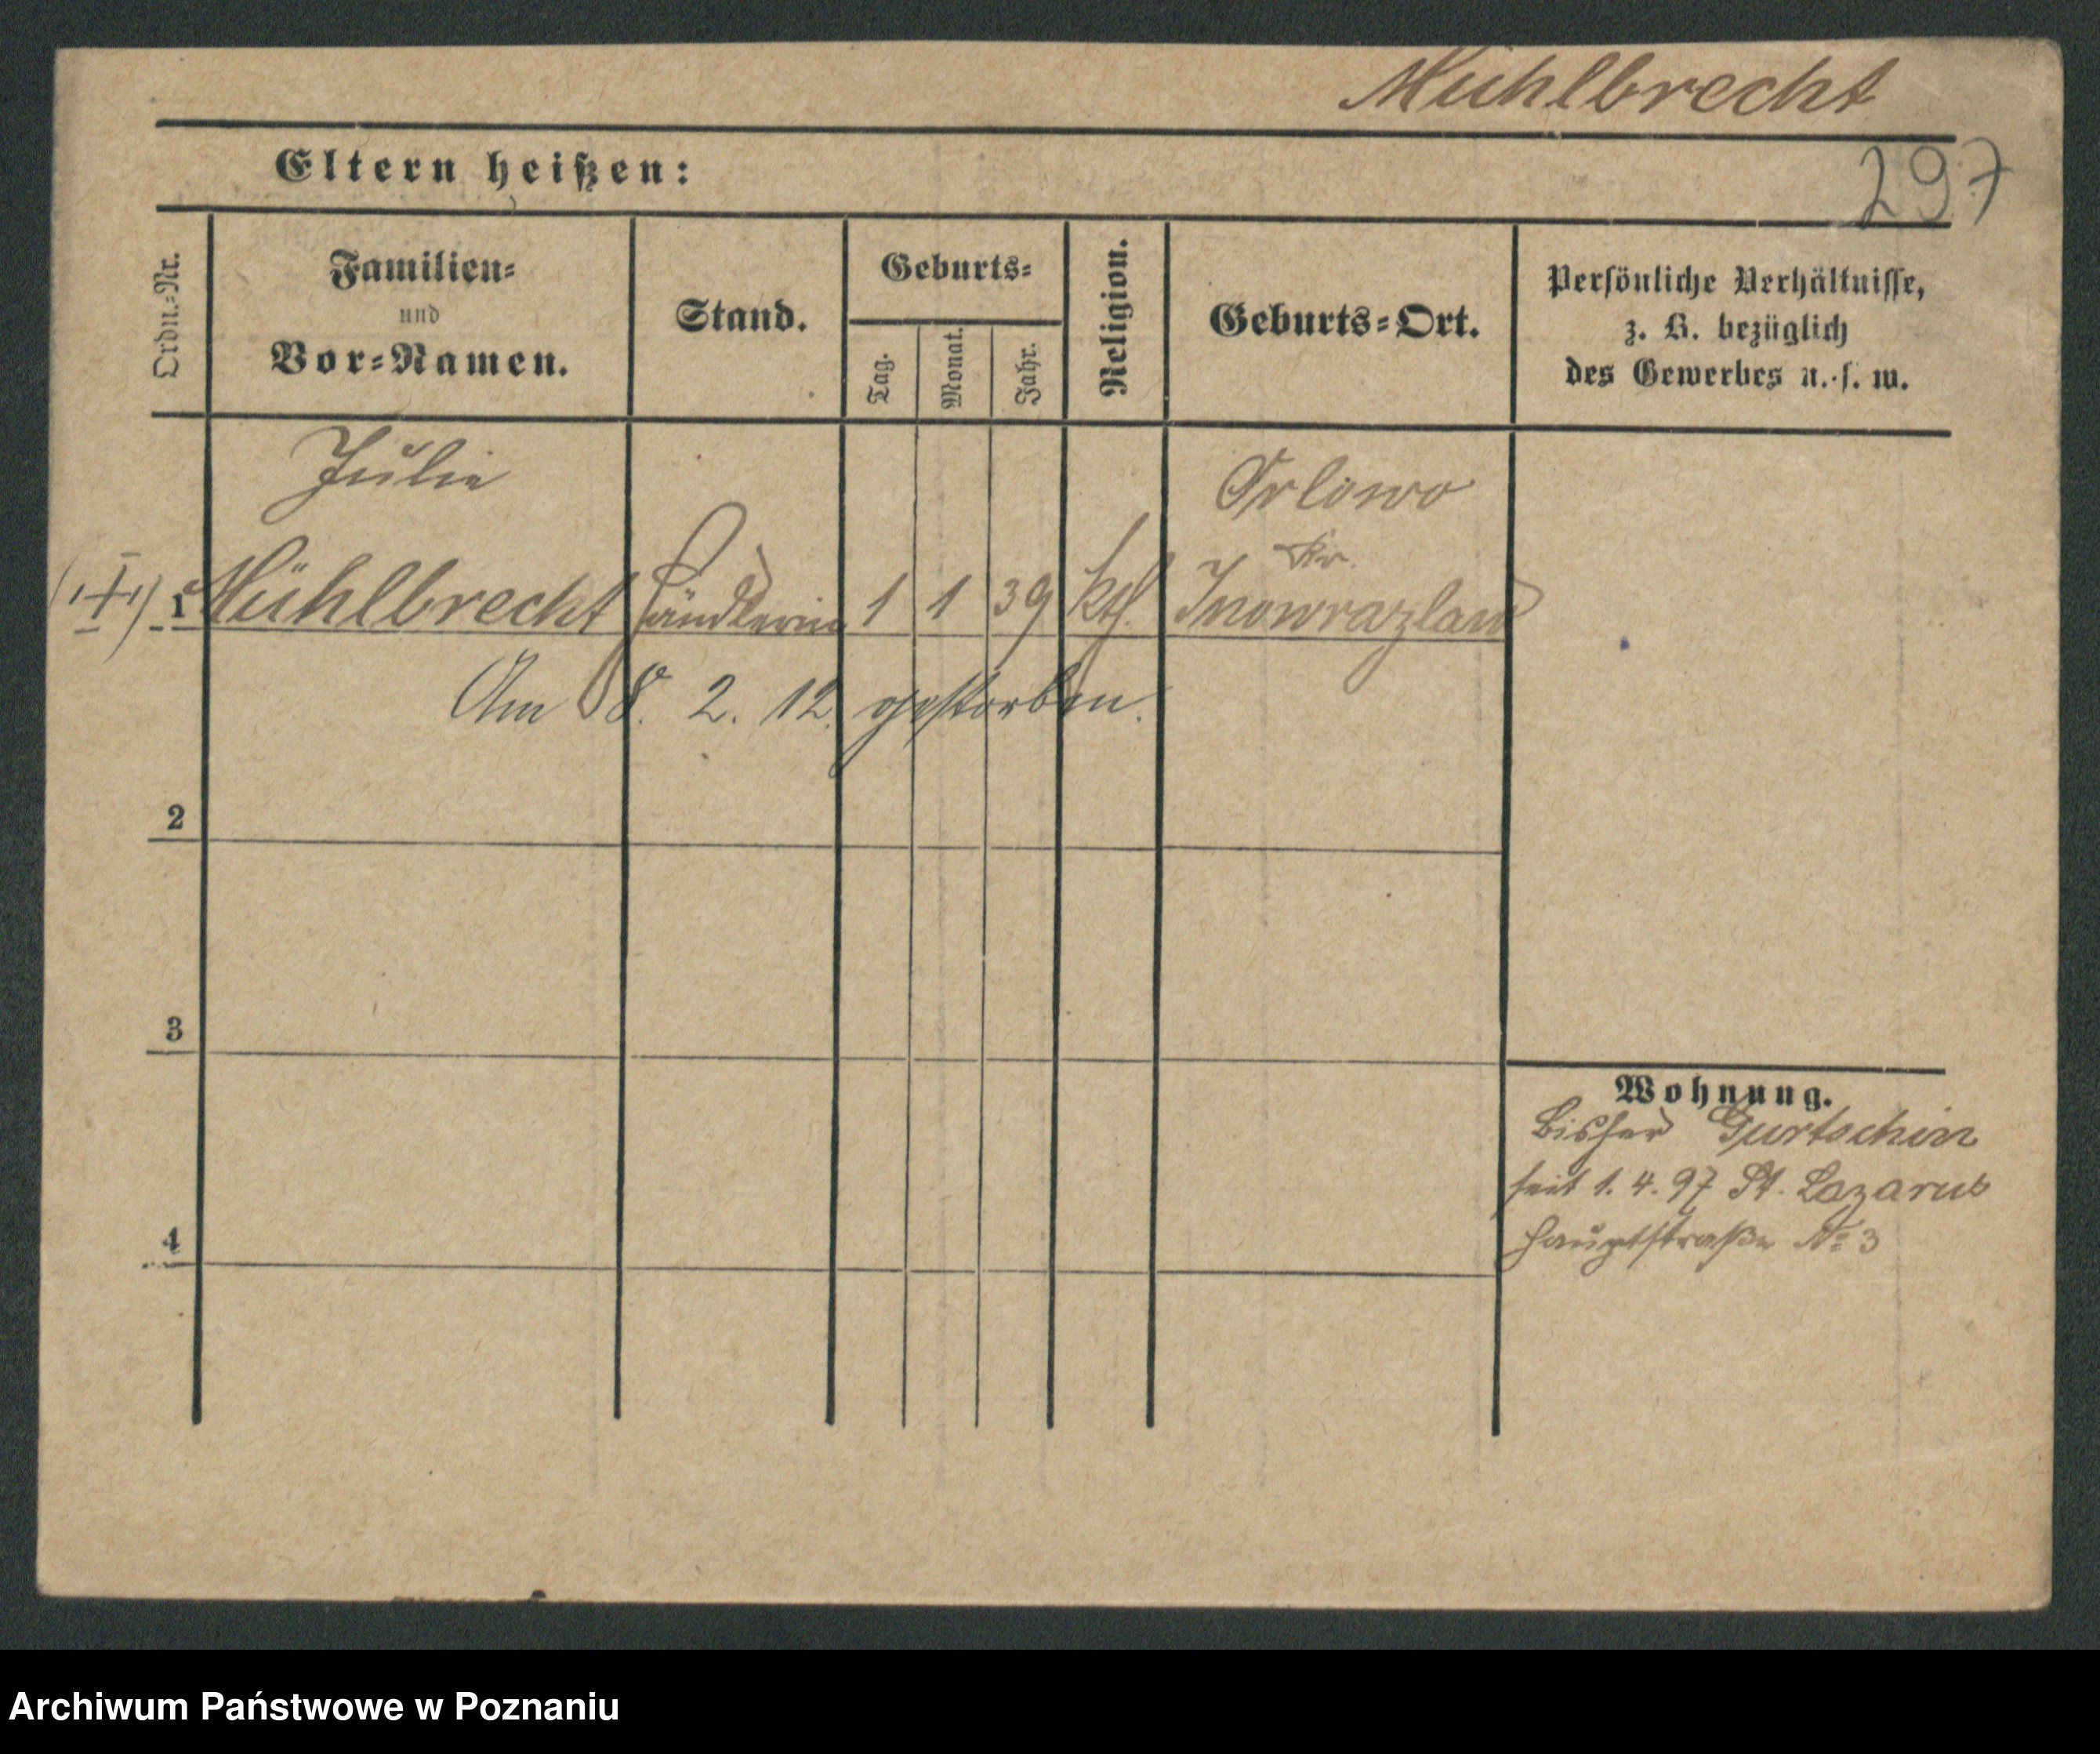 Mühlbrecht
Eltern heißen:
297
Ordn.=Nr.
Familien=
und
Vor=Namen.
Stand.
Geburts=
Tag.
Monat.
Jahr.
Religion.
Geburts=Ort.
Persönliche Verhältnisse,
z. B. bezüglich
des Gewerbes u. s. w.
Julie
Orlowo
Kr.
1 Mühlbrecht Händlerin 1 1 39 kth. Inowrazlaw
Am 8. 2. 12. gestorben.
2
3
4
Wohnung.
Bisher Gurtschin
seit 1. 4. 97 St. Lazarus
Hauptstraße № 3
Archiwum Państwowe w Poznaniu